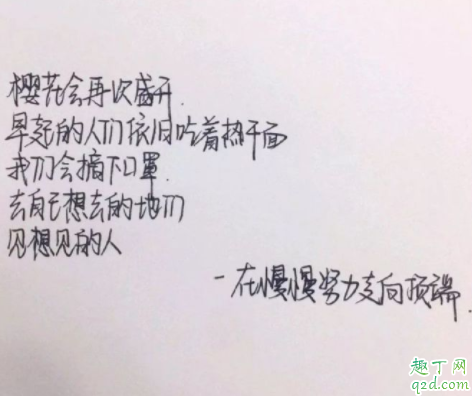 樱花会再次盛开.
早起的人们依旧吃着热干面
我们会摘下口罩.
去自己想去的地们
见想见的人
一在慢慢努力走向顶端.
趣丁网
q2d.com